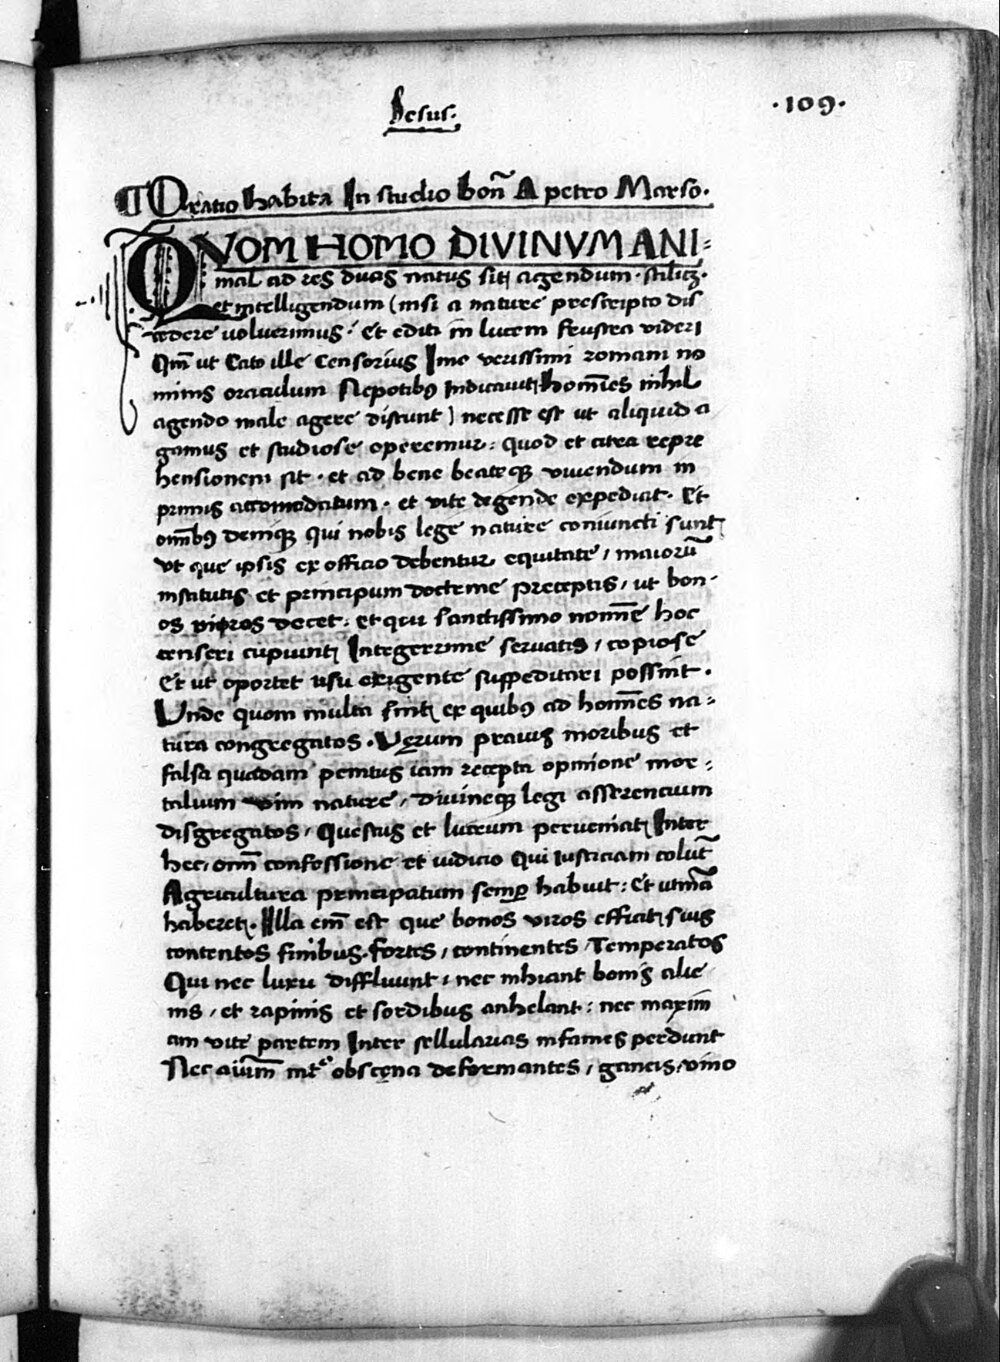 Jesus.
·109·
¶ Oratio habita In studio bon̄ A petro Marso.
QVOM HOMO DIVINVM ANI-
mal ad res duas natus sit agendum · scilicꝫ ·
et intelligendum (nisi a nature prescripto dis
cedere voluerimus · Et editi in lucem frustra videri
Qm̄ ut Cato ille Censorius Imo verissimi romani no
minis oraculum Nepotibꝰ Indicauit hom̄es nihil
agendo male agere discunt) necesse est ut aliquid a
gamus et studiose operemur: quod et citra repre
hensionem sit · et ad bene beateqꝫ viuendum in
primis accomodatum · et vite degende expediat · Et
omībꝰ deniqꝫ qui nobis lege nature coniuncti sunt
vt que ipsis ex officio debentur equitate / maiorū
institutis et principum doctrine preceptis / ut bon-
os viros decet: et qui sanctissimo nomīe hoc
censeri cupiunt Integerrime seruatis / copiose
Et ut oportet usu exigente suppeditari possint ·
Unde quom multa sint ex quibꝰ ad hom̄es na-
tura congregatos · Verum prauis moribus et
falsa quadam penitus iam recepta opinione mor-
talium vim nature / diuineqꝫ legi asserencium
disgregatos / Questus et lucrum perueniat Inter
hec / omī confessione et iudicio Qui iusticiam colūt
Agricultura principatum semper habuit: Et utinā
haberet · Illa em̄ est que bonos viros efficit suis
contentos finibus · fortes / continentes / Temperatos
Qui nec luxu diffluunt / nec inhiant bonis alie
nis / et rapinis et sordibus anhelant: nec maxim
am vite partem Inter sellularias infames perdunt
Nec obscęna deformantes / ganeis / vino